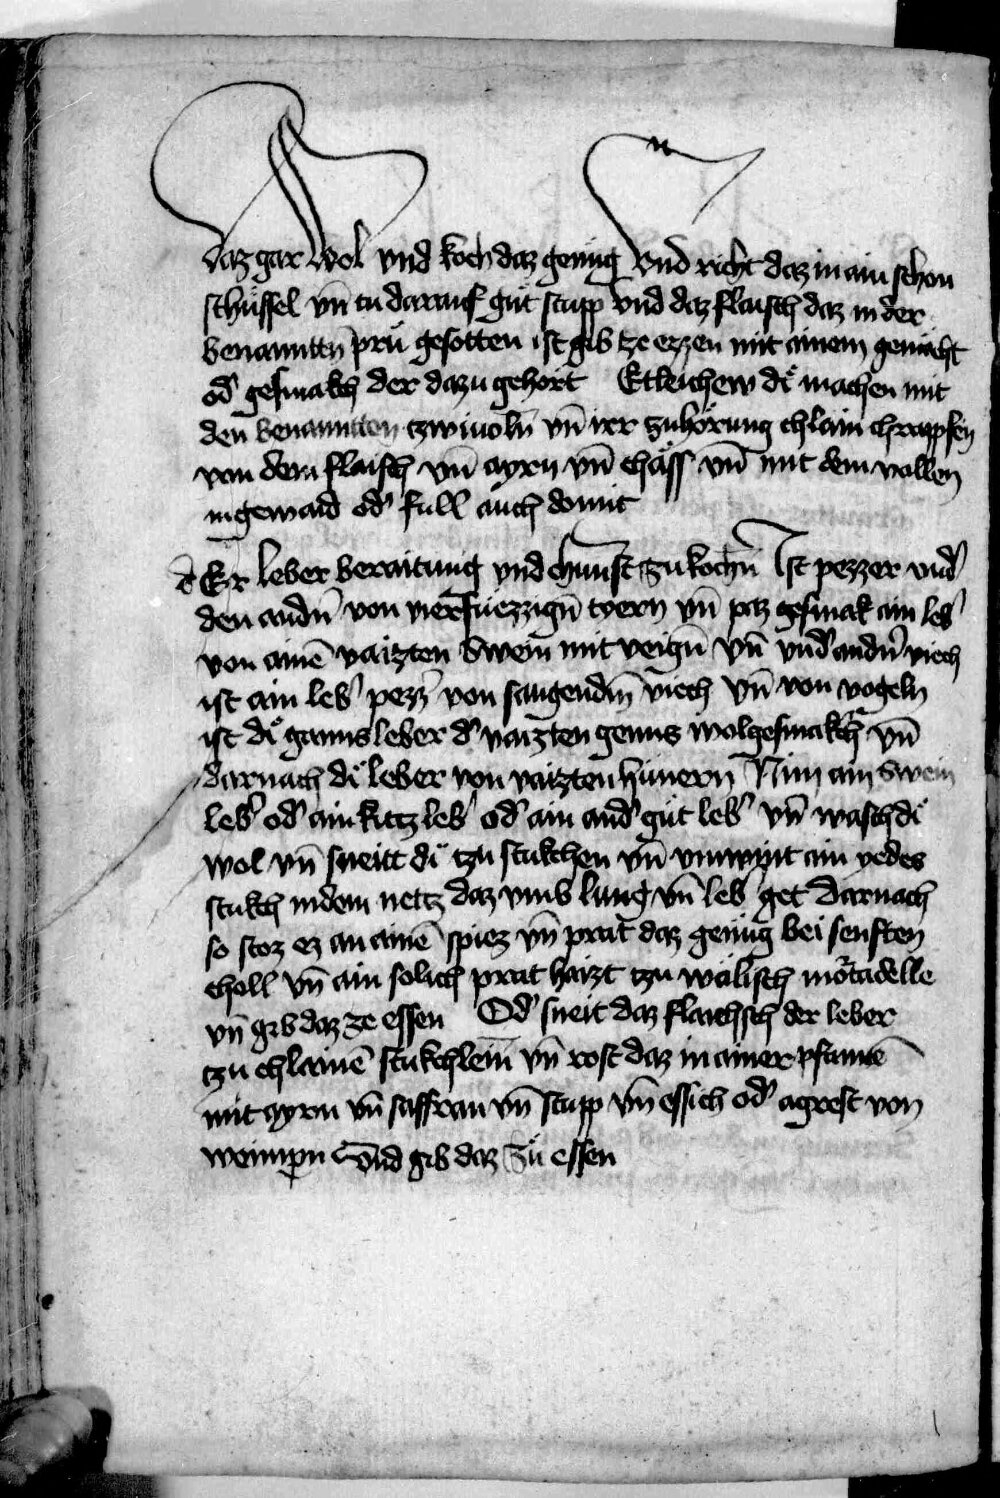 daz gar wol vnd koch daz genüg Vnd richt daz in ain schon
schüssel vn̄ tu darauf güt stupp vnd daz flaisch daz in der
benanntn̄ prü gesotten ist gib tze ezzen mit ainem gemächt
od' gesmakch der dazu gehört Etleichew dͤi machen mit
den benanntten tzwivoln̄ vn̄ irr zuhörung chlain chrappfen
von dem flaisch vn̄ ayrn vn̄ chäss vn̄ mit dem vollen
ingewaid od' full auch domit
d ER leber beraitung vnd chunst zu kochn̄ Ist pezzer vnd'
den andn̄ von vierfüezzign̄ tyern vn̄ paz gesmak ain leb'
von ainē vaizten Swein mit veign̄ vn̄ vnd' andn̄ viech
ist ain leb' pezz' von saugendm̄ viech vn̄ von vogeln
ist dͤi gannsleber d' vaizten genns wolgesmakch' vn̄
darnach dͤi leber von vaizten hünern Nim ain Swein
leb' od' ain kittz leb' od' ain and' güt leb' vn̄ wasch dͤi
wol vn̄ sneitt dͤi tzu stukchen vn̄ vmwint ain yedes
stukch in dem nettz daz vmb lung vn̄ leb' get Darnach
so stoz ez an ainē spiez vn̄ prat daz genüg bei senften
choll vn̄ ain solich prat haizt tzu wälisch mo'tadelle
vn̄ gib daz ze essen Od' sneit daz flaichsch der leber
tzu chlainē stukchlein vn̄ rost daz in ainer pfannē
mit ayrn vn̄ saffran vn̄ stupp vn̄ essich od' agrest von
weinpn Vnd gib daz zü essen